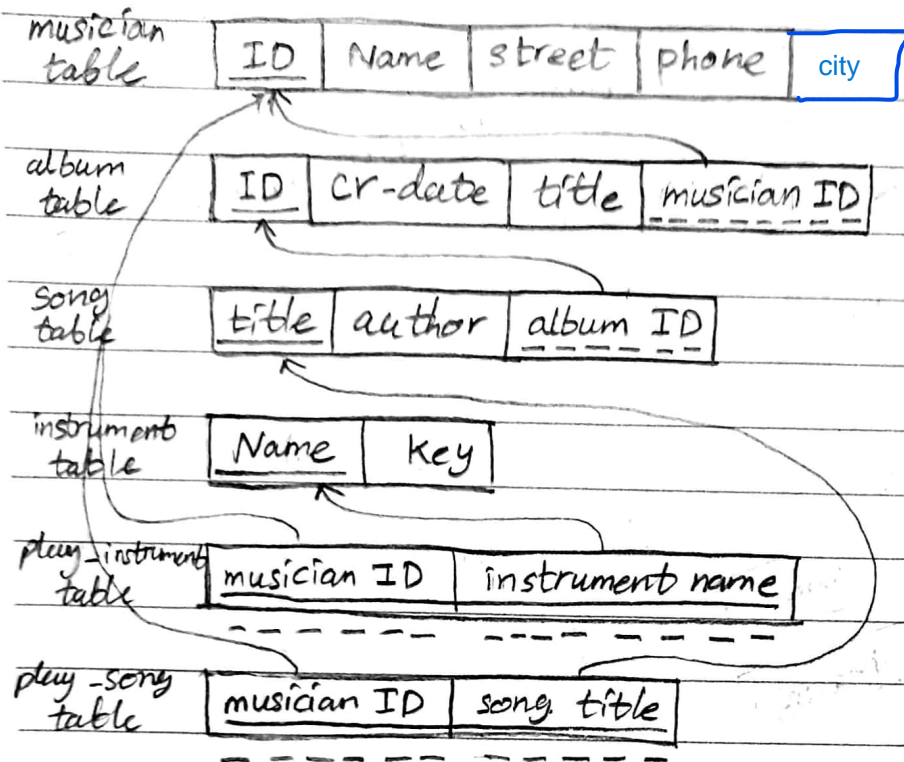 musician table
ID Name street phone city
album table
ID cr-date title musician ID
song table
title author album ID
instrument table
Name Key
play_instrument table
musician ID instrument name
play_song table
musician ID song title